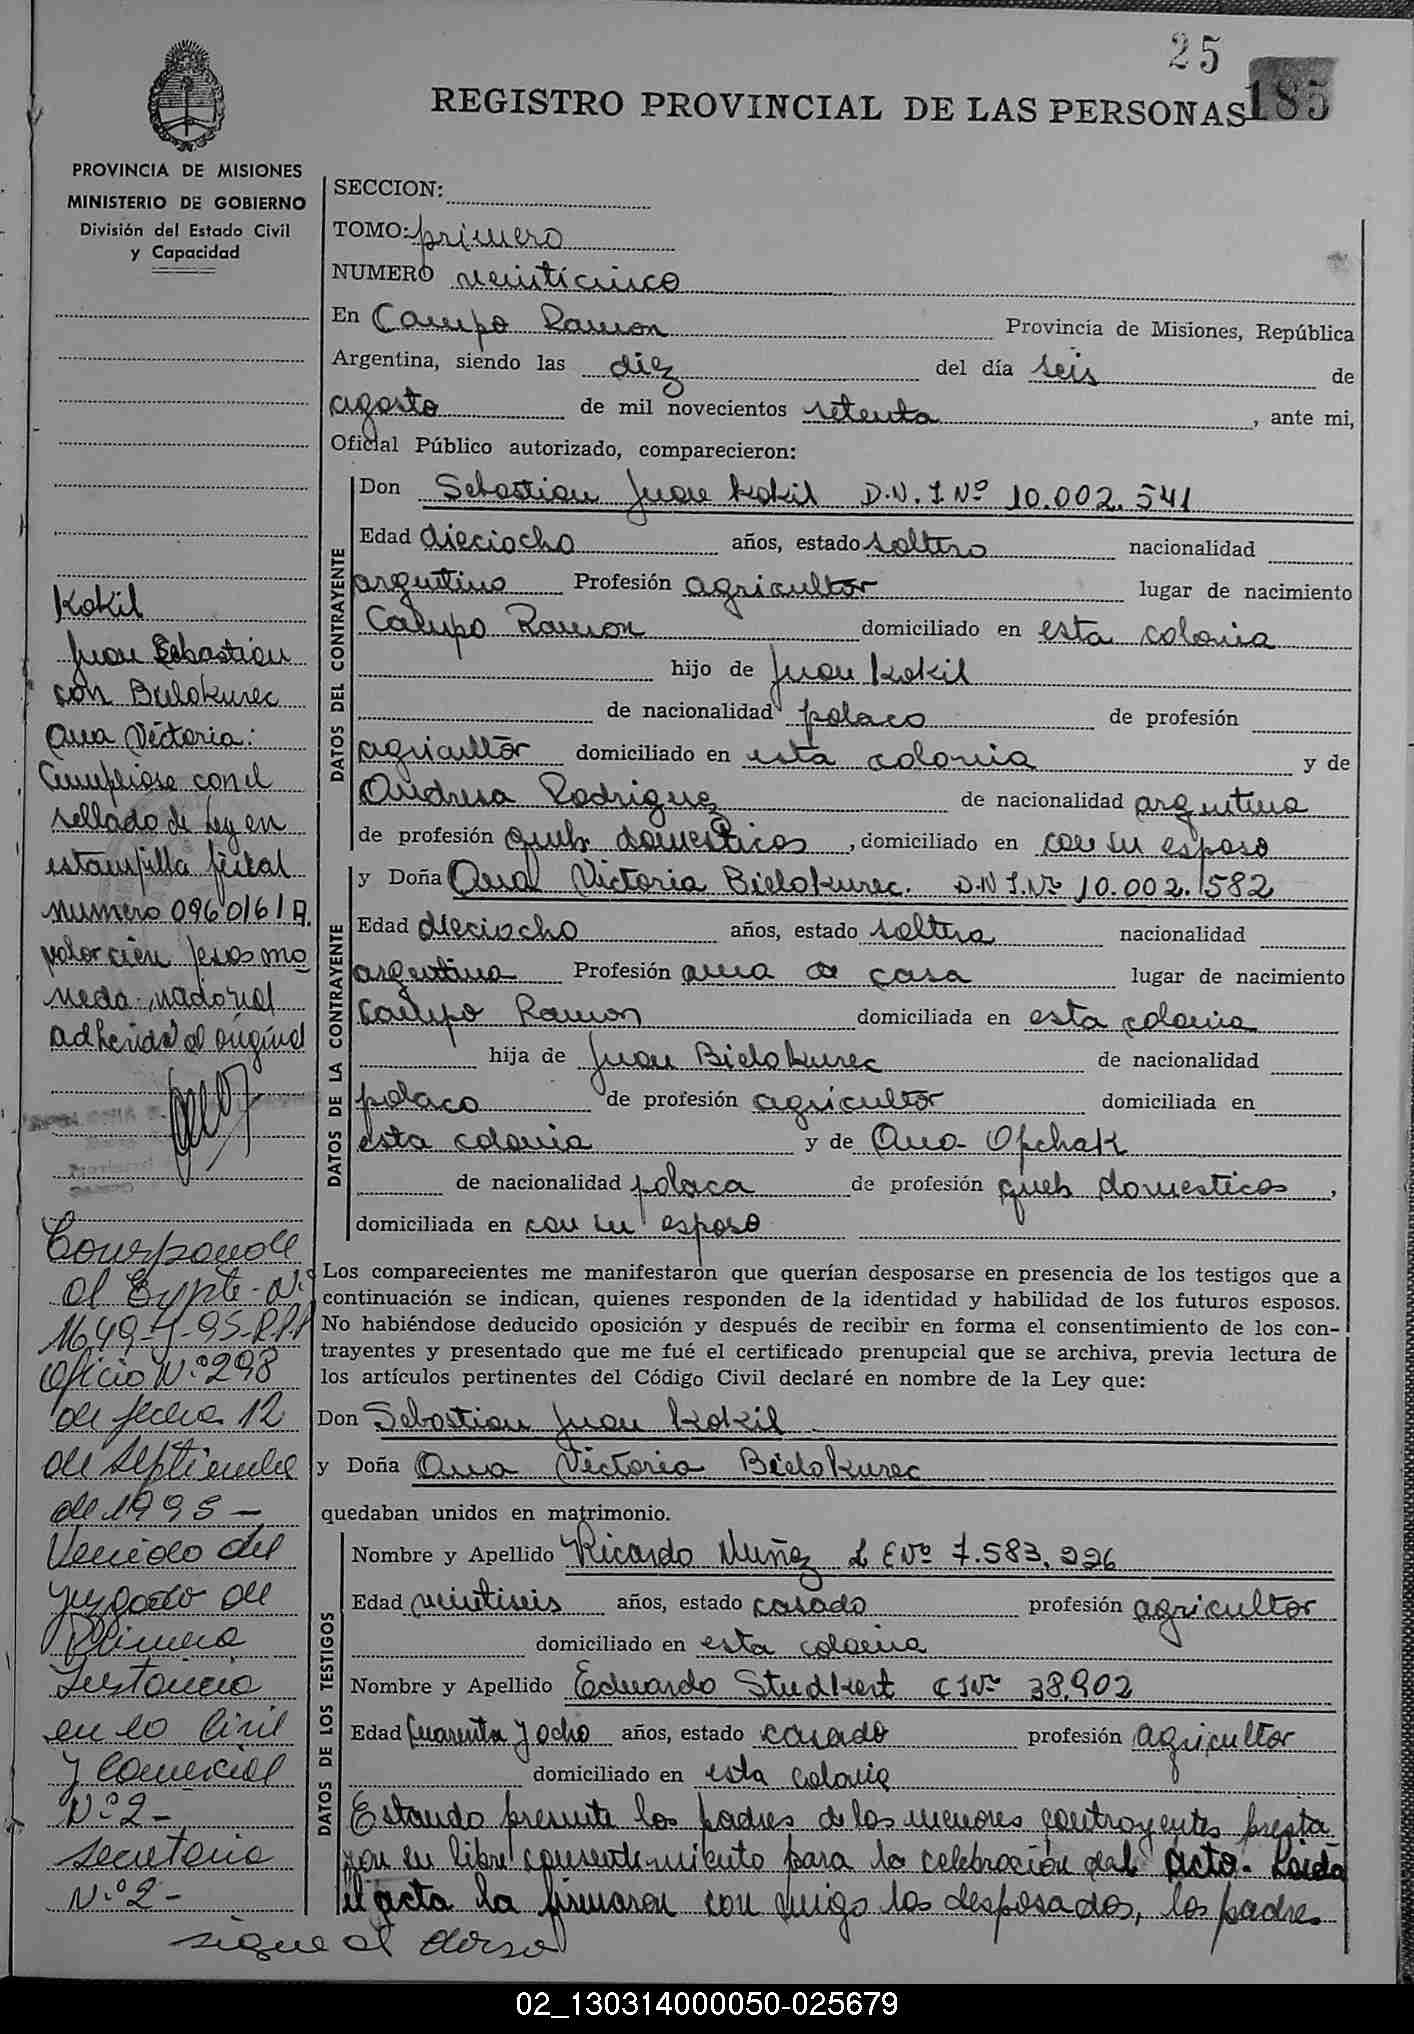 25
185
REGISTRO PROVINCIAL DE LAS PERSONAS
PROVINCIA DE MISIONES
MINISTERIO DE GOBIERNO
División del Estado Civil
y Capacidad
SECCION:
TOMO: primero
NUMERO veinticinco
En Campo Ramon Provincia de Misiones, República
Argentina, siendo las diez del día seis de
agosto de mil novecientos setenta, ante mi,
Oficial Público autorizado, comparecieron:
DATOS DEL CONTRAYENTE
Don Sebastian Juan Kokil D.N.I Nº 10.002.541
Edad dieciocho años, estado soltero nacionalidad
argentino Profesión agricultor lugar de nacimiento
Campo Ramon domiciliado en esta colonia
hijo de Juan Kokil
de nacionalidad polaco de profesión
agricultor domiciliado en esta colonia y de
Andresa Rodriguez de nacionalidad argentina
de profesión queh domesticos, domiciliado en con su esposo
DATOS DE LA CONTRAYENTE
y Doña Ana Victoria Bielokurec. D.N.I.Nº 10.002.582
Edad dieciocho años, estado soltera nacionalidad
argentina Profesión ama de casa lugar de nacimiento
Campo Ramon domiciliada en esta colonia
hija de Juan Bielokurec de nacionalidad
polaco de profesión agricultor domiciliada en
esta colonia y de Ana Opchak
de nacionalidad polaca de profesión queh domesticos,
domiciliada en con su esposo
Los comparecientes me manifestaron que querían desposarse en presencia de los testigos que a
continuación se indican, quienes responden de la identidad y habilidad de los futuros esposos.
No habiéndose deducido oposición y después de recibir en forma el consentimiento de los con-
trayentes y presentado que me fué el certificado prenupcial que se archiva, previa lectura de
los artículos pertinentes del Código Civil declaré en nombre de la Ley que:
Don Sebastian Juan Kokil
y Doña Ana Victoria Bielokurec
quedaban unidos en matrimonio.
DATOS DE LOS TESTIGOS
Nombre y Apellido Ricardo Nuñez L E Nº 7.583.226
Edad veintiseis años, estado casado profesión agricultor
domiciliado en esta colonia
Nombre y Apellido Eduardo Studkert C I Nº 38.902
Edad Cuarenta y ocho años, estado casado profesión agricultor
domiciliado en esta colonia
Estando presente los padres de los menores contrayentes presta
ron su libre consentimiento para la celebración del acto. Leida
el acta la firmaron con migo los desposados, los padres
sigue al dorso
Kokil
Juan Sebastian
con Bielokurec
Ana Victoria:
Cumpliose con el
sellado de Ley en
estampilla fiscal
numero 0960161 A.
valor cien pesos mo
neda nacional
adherida al original
Corresponde
al Expte. Nº
1649-J-95-R.P.P
Oficio Nº 298
de fecha 12
de septiembre
de 1995 -
Venido del
juzgado de
Primera
Instancia
en lo Civil
y Comercial
Nº 2 -
Secretaria
Nº 2 -
02_130314000050-025679